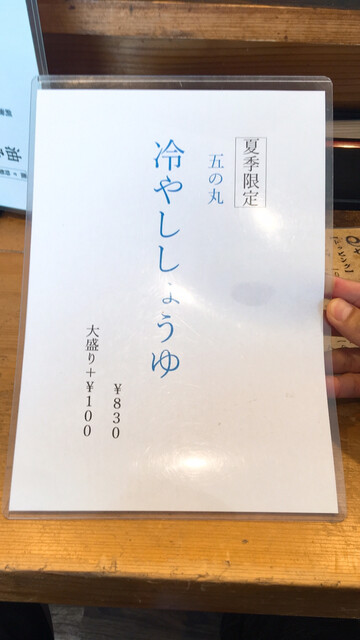 夏季限定
五の丸
冷やししょうゆ
¥830
大盛り+¥100